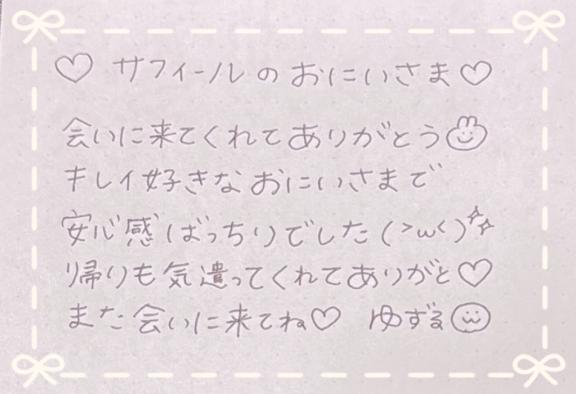 ♡ サフィールのおにいさま♡
会いに来てくれてありがとう
キレイ好きなおにいさまで
安心感ばっちりでした(>ω<)
帰りも気遣ってくれてありがと♡
また会いに来てね♡ ゆずる